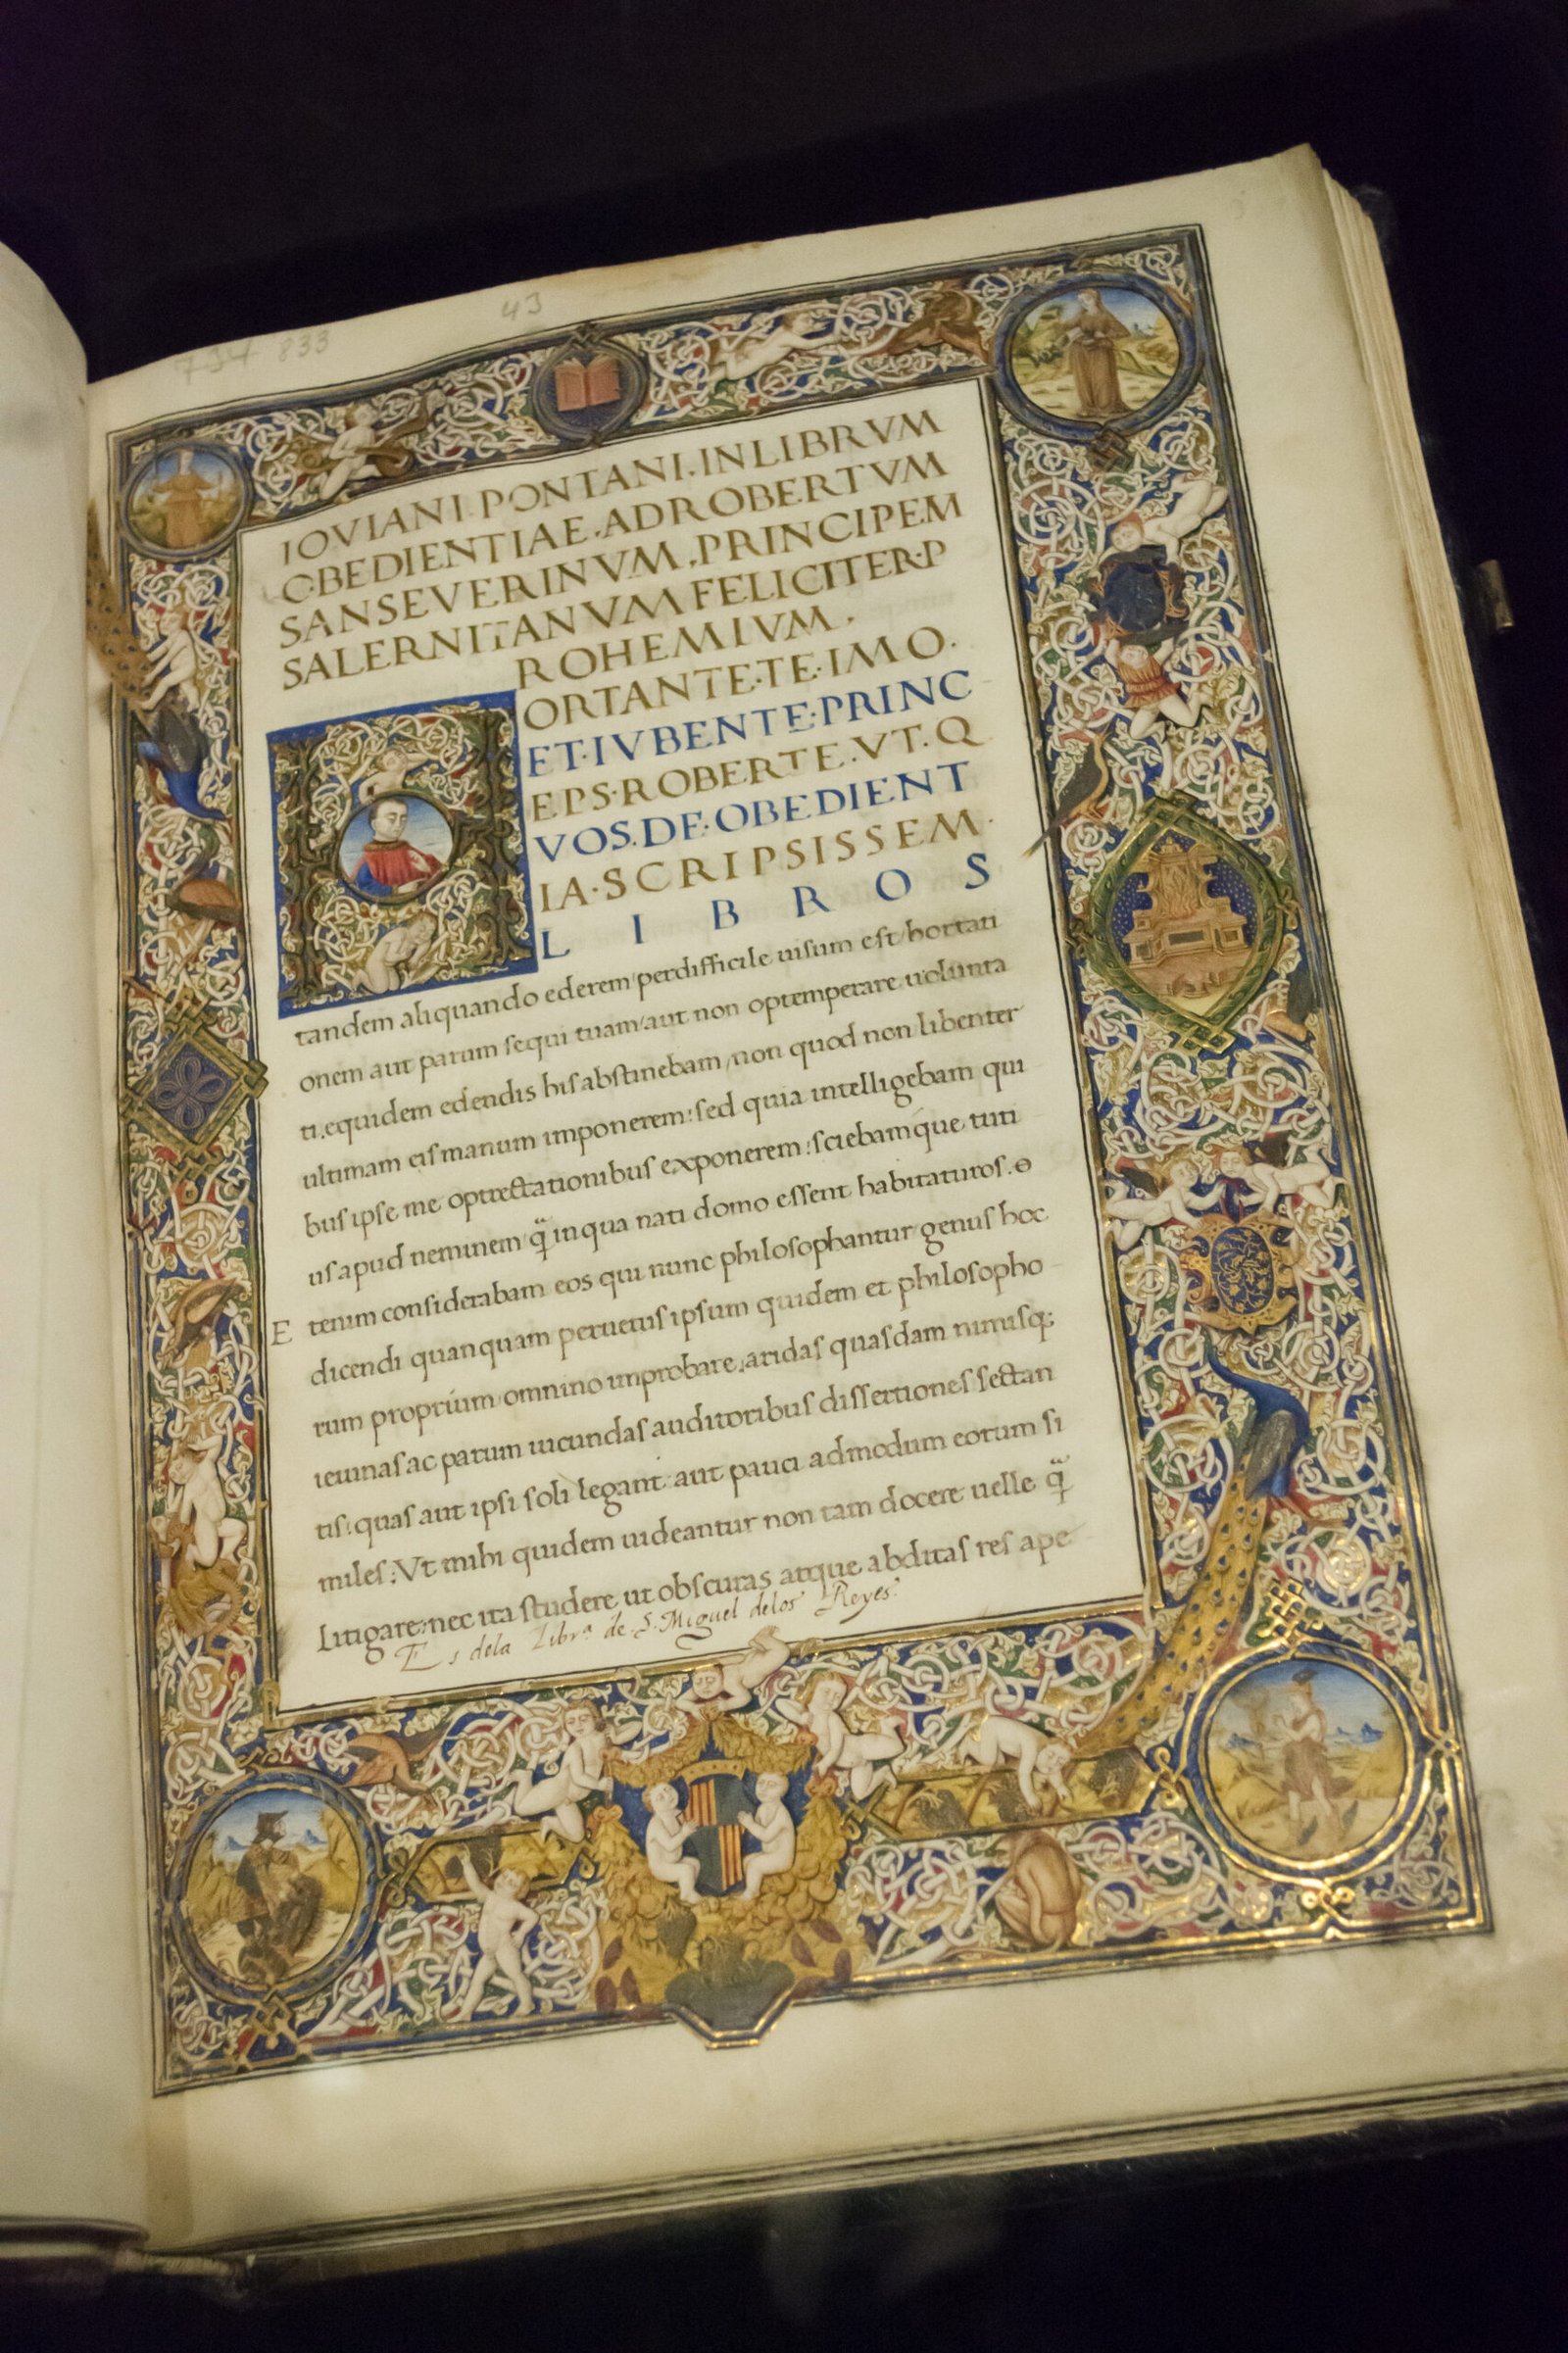 43
734 833
IOVIANI·PONTANI·IN LIBRVM
OBEDIENTIAE·AD ROBERTVM
SANSEVERINVM·PRINCIPEM
SALERNITANVM FELICITER·P
ROHEMIVM·
ORTANTE·TE·IMO·
ET·IVBENTE·PRINC
EPS·ROBERTE·VT·Q
VOS·DE·OBEDIENT
IA·SCRIPSISSEM·
LIBROS
tandem aliquando ederem/perdifficile uisum est/hortati
onem aut parum sequi tuam/aut non optemperare uolunta
ti.equidem edendis his abstinebam/non quod non libenter
ultimam eis manum imponerem:sed quia intelligebam qui
bus ipse me optrectationibus exponerem:sciebamque tuti
us apud neminem q̈ in qua nati domo essent habitaturos.
E tenim considerabam eos qui nunc philosophantur genus hoc
dicendi quanquam peruetus ipsum quidem et philosopho
rum proprium/omnino improbare,aridas quasdam nimisq;
ieiunas ac parum iucundas auditoribus dissertiones sectan
tis:quas aut ipsi soli legant:aut pauci admodum eorum si
miles:Vt mihi quidem uideantur non tam docere uelle q̈
Litigare:nec ita studere ut obscuras atque abditas res ape
Es dela Libra de S. Miguel delos Reyes.